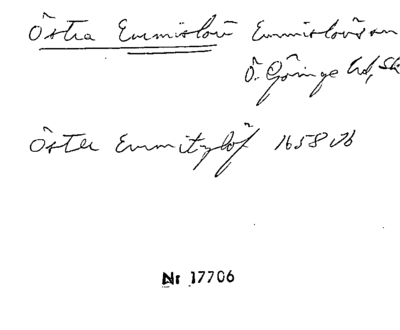 Östra Emmislöv Emmislövs sn
Ö. Göinge hd, Sk
Öster Emmitzlöf 1658 Jb
Nr 17706